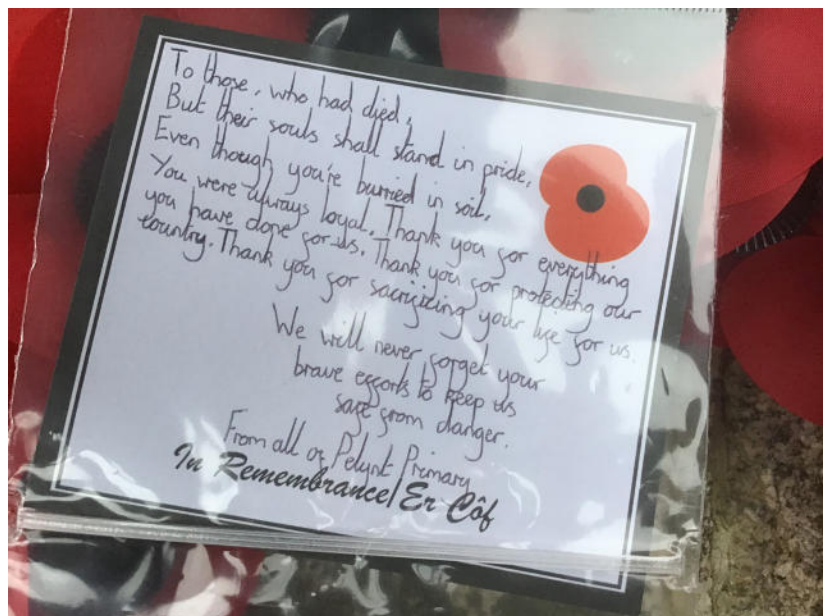 To those, who had died,
But their souls shall stand in pride,
Even though you're burried in soil,
You were always loyal. Thank you for everything
you have done for us. Thank you for protecting our
country. Thank you for sacrifizing your life for us.
We will never forget your
brave efforts to keep us
safe from danger.
From all of Pelynt Primary
In Remembrance/Er Côf